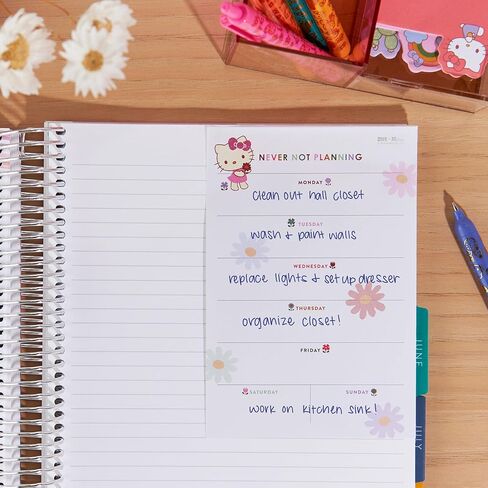 NEVER NOT PLANNING
MONDAY
clean out hall closet
TUESDAY
wash & paint walls
WEDNESDAY
replace lights & set up dresser
THURSDAY
organize closet!
FRIDAY
SATURDAY
SUNDAY
work on kitchen sink!
JUNE
JULY